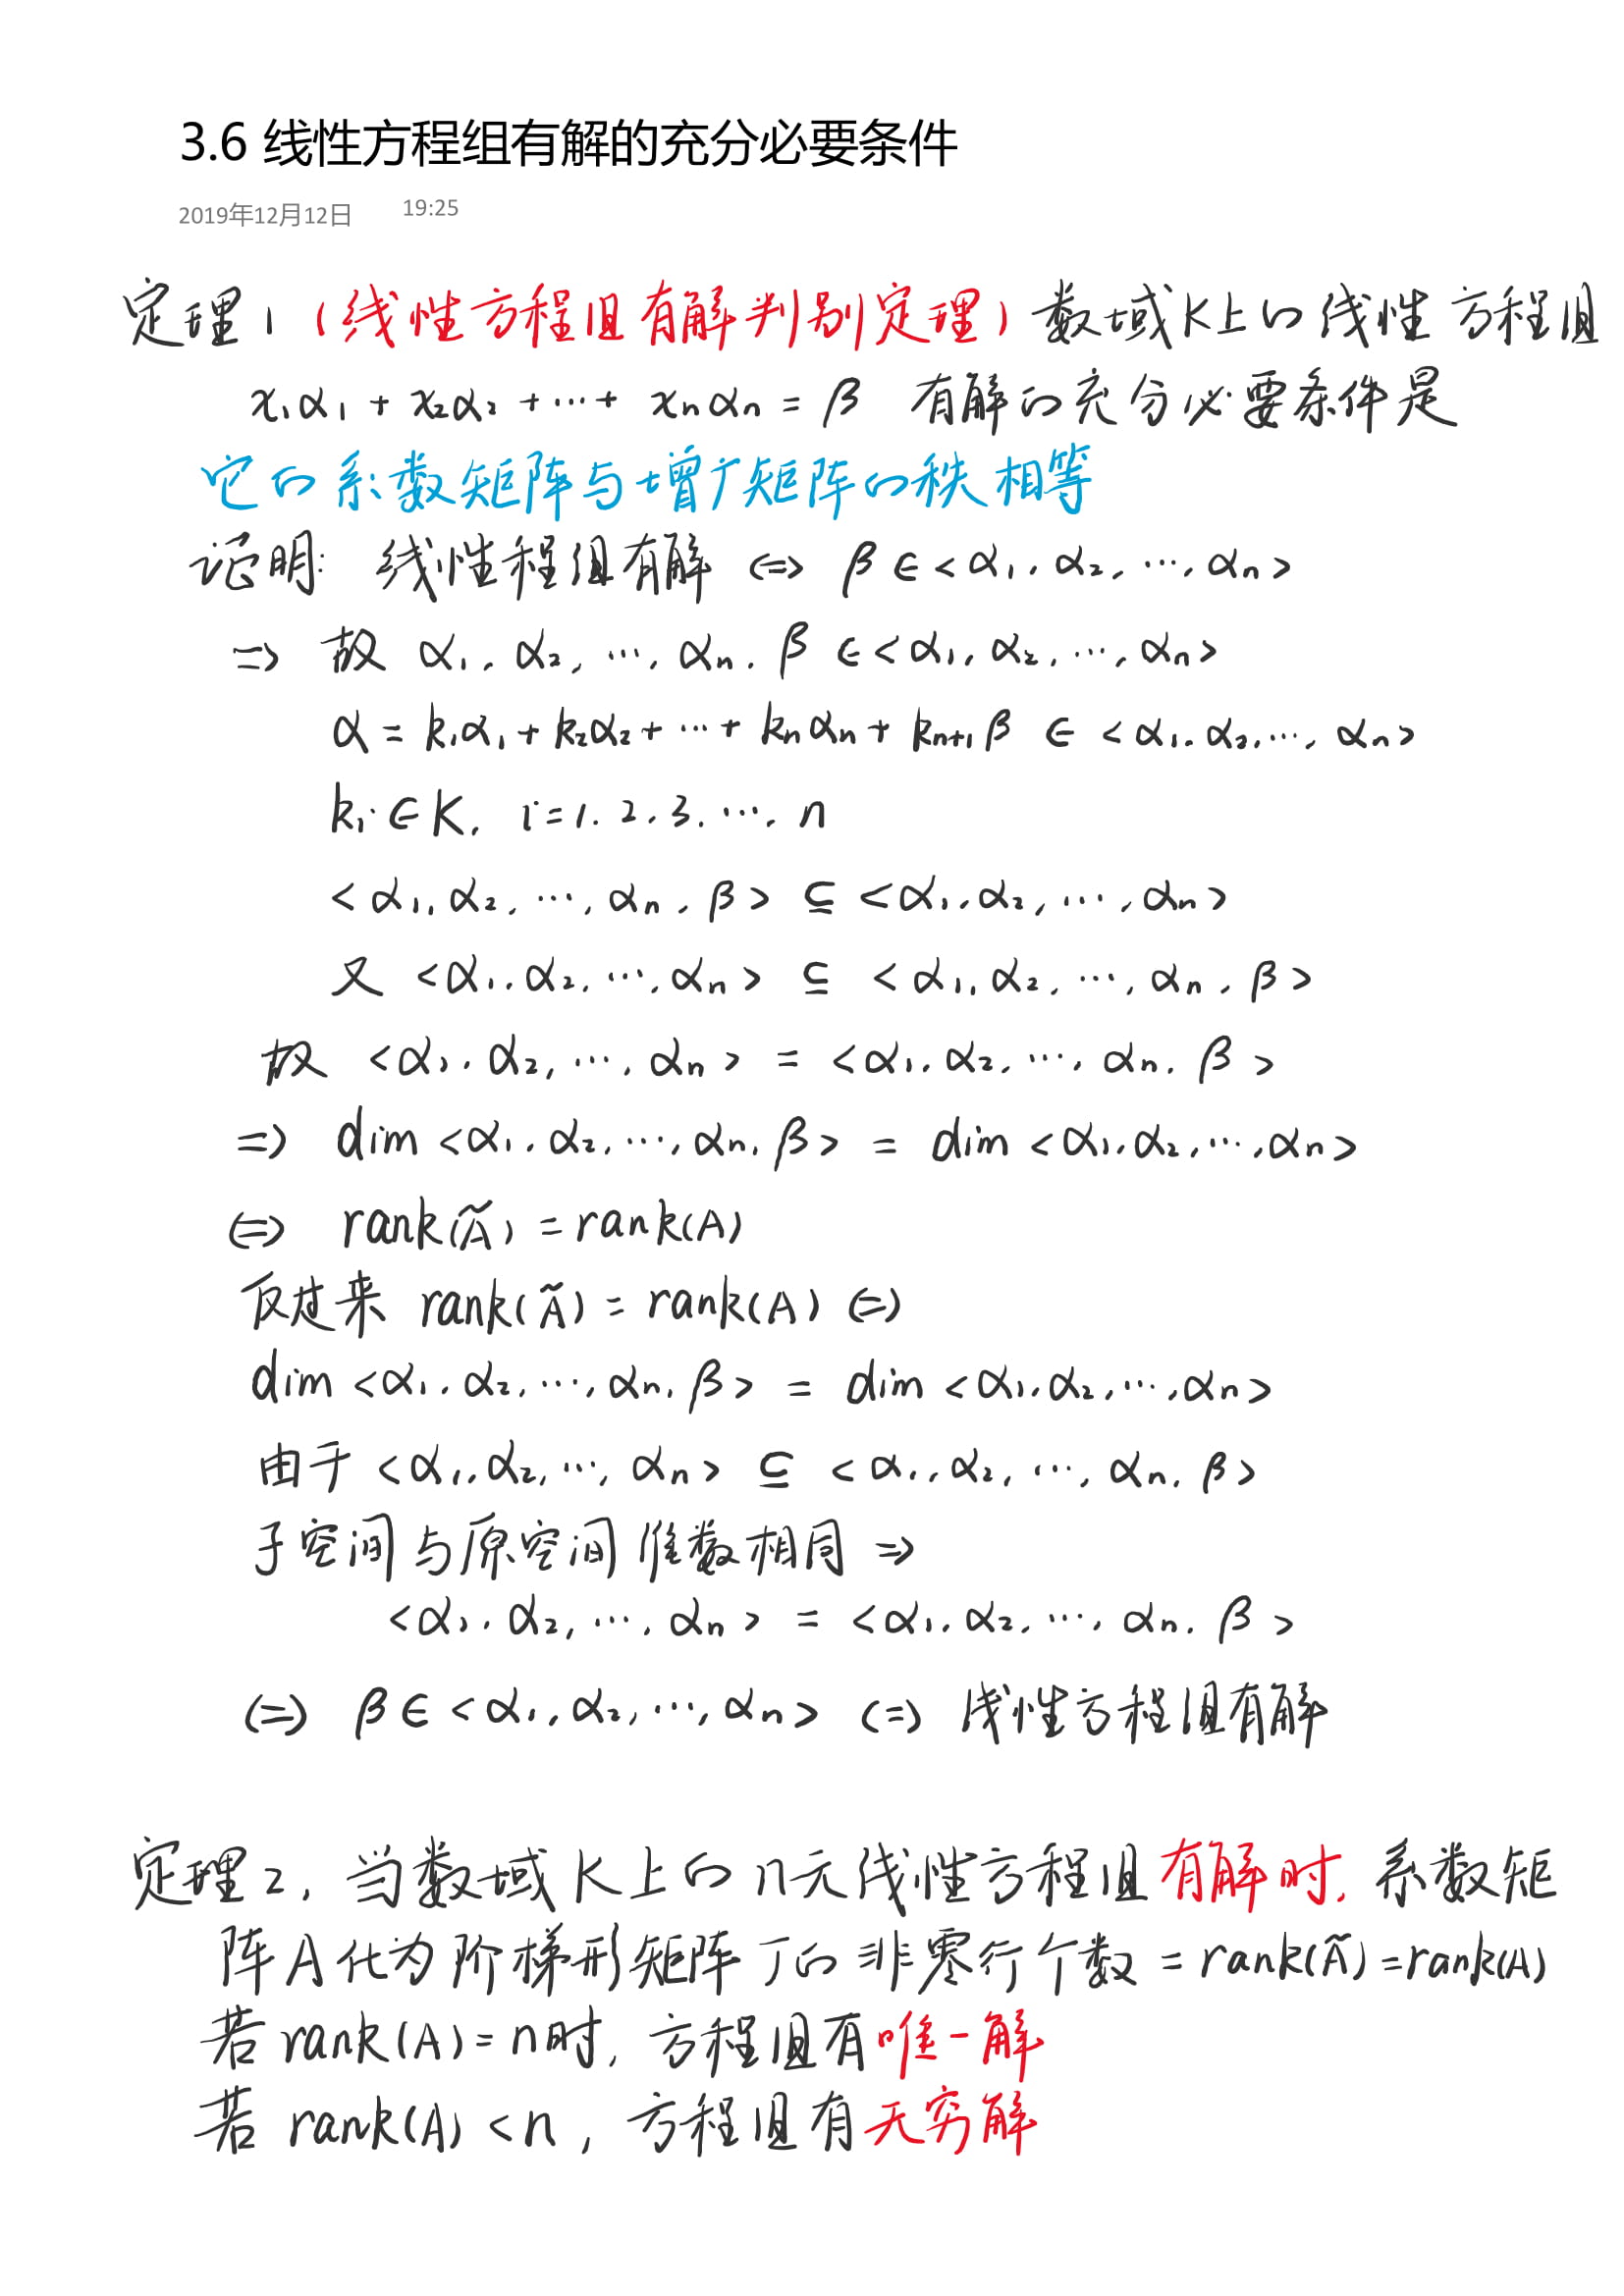 3.6 线性方程组有解的充分必要条件
2019年12月12日 19:25
定理1 (线性方程组有解判别定理) 数域K上的线性方程组
x₁α₁ + x₂α₂ + ⋯ + xₙαₙ = β 有解的充分必要条件是
它的系数矩阵与增广矩阵的秩相等
证明: 线性程组有解 <=> β ∈ <α₁, α₂, ⋯, αₙ>
=> 故 α₁, α₂, ⋯, αₙ, β ∈ <α₁, α₂, ⋯, αₙ>
α = k₁α₁ + k₂α₂ + ⋯ + kₙαₙ + kₙ₊₁β ∈ <α₁, α₂, ⋯, αₙ>
kᵢ ∈ K, i = 1, 2, 3, ⋯, n
<α₁, α₂, ⋯, αₙ, β> ⊆ <α₁, α₂, ⋯, αₙ>
又 <α₁, α₂, ⋯, αₙ> ⊆ <α₁, α₂, ⋯, αₙ, β>
故 <α₁, α₂, ⋯, αₙ> = <α₁, α₂, ⋯, αₙ, β>
=> dim <α₁, α₂, ⋯, αₙ, β> = dim <α₁, α₂, ⋯, αₙ>
<=> rank(Ã) = rank(A)
反过来 rank(Ã) = rank(A) <=>
dim <α₁, α₂, ⋯, αₙ, β> = dim <α₁, α₂, ⋯, αₙ>
由于 <α₁, α₂, ⋯, αₙ> ⊆ <α₁, α₂, ⋯, αₙ, β>
子空间与原空间维数相同 =>
<α₁, α₂, ⋯, αₙ> = <α₁, α₂, ⋯, αₙ, β>
<=> β ∈ <α₁, α₂, ⋯, αₙ> <=> 线性方程组有解
定理2, 当数域K上的n元线性方程组有解时, 系数矩
阵A化为阶梯形矩阵J的非零行个数 = rank(Ã) = rank(A)
若 rank(A) = n时, 方程组有唯一解
若 rank(A) < n, 方程组有无穷解